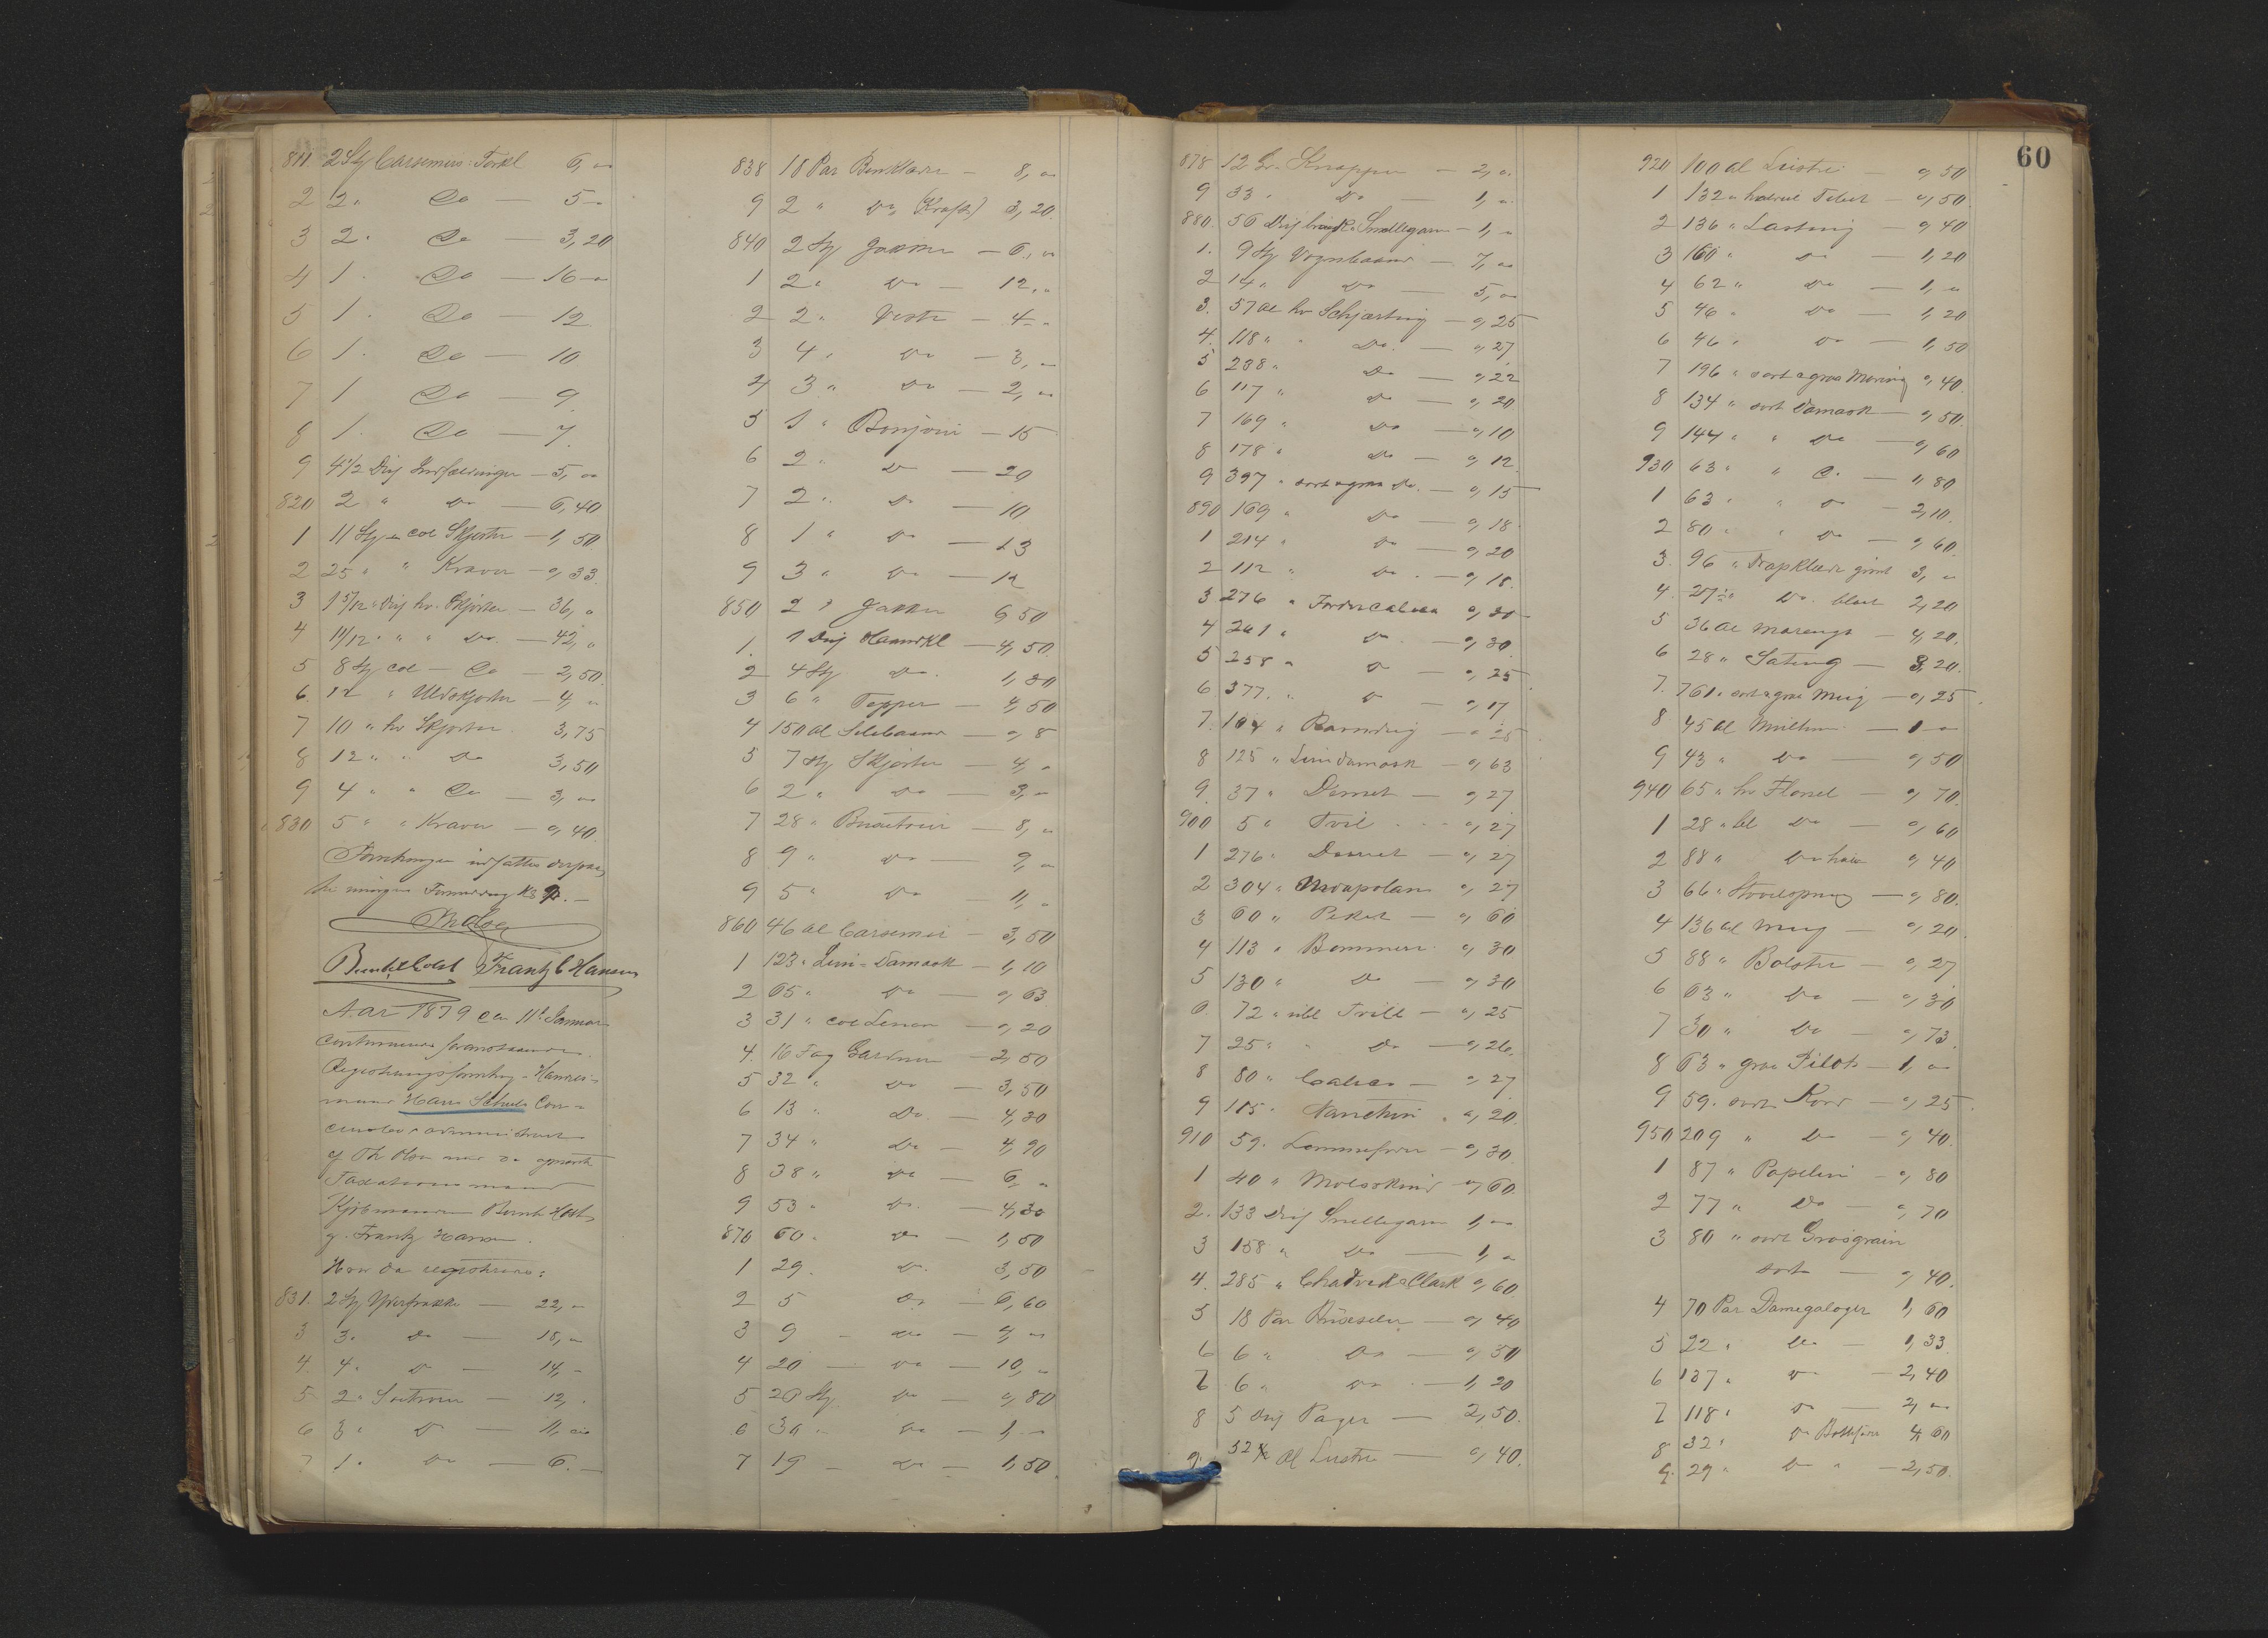 811 2 Stk Carsemirs Tørkl 6, "
2 2 " Do — 5 "
3 2 " Do — 3,20
4 1 " Do — 16 "
5 1 " Do — 12
6 1 " Do — 10
7 1 Do — 9
8 1 " Do — 7
9 4 1/2 Dsj Indfældninger — 5, "
820 2 " Do — 6,40
1 11 Stk col Skjorter — 1,50
2 25 " " Kraver — 0,33
3 1 5/12 Dsj hv. Skjorter — 36, "
4 11/12 " " " Do. — 42, "
5 8 Stk col — Do — 2,50
6 12 " Uldskjorter — 4, "
7 10 " hv Skjorter 3,75
8 12 " " Do 3,50
9 4 " " Do — 3, "
830 5 " " Kraver — 0,40
Forretningen
Th Olsen
Bernt Holst Frantz C Hansen
Aar 1879 den 11te Januar
continueres foranstaaende
Registreringsforretng i Handels-
mand Hans Schults Con-
cursbo administreret
af Th Olsen med de opnævnte
Taxationsmænd
Kjøbmændene Bernt Holst
og Frantz Hansen.
Hvor da registreres:
831. 2 Stk Yderfrakke — 22, "
3 3 " Do — 18, "
4. 4 " Do — 14, "
5 2 " Surtrouer — 12, "
6 3 " Do — 11, "
7 1 " Do — 6. —
838 18 Par Benklæder — 8, "
9 2 " Do (Kraft) 3,20
840 2 Stk Jakker — 6, "
1 2 " Do — 12, "
2 2 " Veste — 4 "
3 4 " Do — 3, "
4 3 " Do — 2, "
5 1 " Bonjour — 15
6 2 " Do — 20
7 2 " Do — 10
8 1 " Do — 13
9 3 " Do — 12
850 2 " Jakker 6,50
1. 1 Dsj Haandkl — 4,50
2 4 Stk Do. 1,80
3 6 " Tepper — 4,50
4 150 Al Silebaand — 0,8
5 7 Stk Skjorter — 4, "
6 2 " Do — 3, "
7 28 " Buxetrøier — 8, "
8 9 " Do — 9, "
9 5 " Do 11, "
860 46 Al Carsemir — 3,50
1 123 " Linn-Damask — 1,10
2 65 " Do — 0,63
3 31 " col Lenon — 0,20
4. 16 Fag Gardiner — 2,50
5 32 " Do — 3,50
6 13 " Do. — 4,30
7 34 " Do — 4,90
8 38 " Do — 6, "
9 53 " Do. — 4,30
870 60 " Do — 1,50
1 29 " Do. 3,50
2 5 Do — 6,60
3 9 — Do — 9, "
4 20 — Do — 10, "
5 20 Stk Do — 0,80
6 30 " Do — 1 —
7 19 — Do — 1,50
878 12 Gr. Knapper — 2, "
9 33 " Do — 1, "
880. 56 Dsj Smellegarn — 1, "
1. 9 Stk Vognbaand — 7, "
2 14 " Do — 5, "
3. 57 Al hv Schjærting — 0,25
4. 118 " " Do. — 0,27
5 288 " Do — 0,22
6 117 " Do — 0,20
7 169 " Do — 0,10
8 178 " Do — 0,12
9 397 " sort og graa Do. — 0,15
890 169 " Do — 0,18
1 214 " Do — 0,20
2 112 " Do — 0,18
3 276 " Fordercalicea 0,20
4 261 " Do — 0,30
5 258 " Do — 0,25
6 377 " Do — 0,17
7. 104 " — 0,25
8 125 " Linndamask — 0,63
9. 37 " Damet — 0,27
900 5 " Tvil — 0,27
1 276 " Domet — 0,27
2 304 " Madapolam 0,27
3 60 " Peket — 0,60
4 113 " Bommesi 0,30
5 130 " Do — 0,30
6. 72 " ubl Tvill — 0,25
7 25 " " Do — 0,26
8 80 " Calico — 0,27
9 115 " Nanckin " 0,20
910 59 " Lommefoer — 0,30
1 40 " Molsskind — 0,60
2. 133 Dsj Snellegarn 1, "
3 158 " Do — 1, "
4. 285 " Chadvick & Clark 0,60
5 18 Par Buxeseler — 0,40
6 6 " Do — 0,50
7 6 " Do — 1,20
8 5 Dsj Pager — 2,50
9. 32 1/2 Al Lustre — 0,40
60
920 100 Al Lustre — 0,50
1 132 " halvul Tibet — 0,50
2 136 " Lasting — 0,40
3 160 " Do — 1,20
4 62 " Do — 1, "
5 46 " Do — 1,20
6 46 " Do — 1,50
7 196 " sort og graa Moring 0,40
8 134 " sort Damask — 0,50
9 144 " " Do — 0,60
930 63 " " Do — 1,80
1 63 " " Do — 2,10
2 80 " " Do — 0,60
3. 96 " Drapklæde 3, "
4. 27 1/2 " Do. blaat 2,20
5 36 Al Marengo — 4,20
6 28 " Sateng — 3,20
7. 761 " sort og graa Meng — 0,25
8 45 Al Multum — 1 "
9 43 " Do — 0,50
940 65 " hv Flonel — 0,70
1 28 " bl Do — 0,60
2 88 " Do halv 0,40
3 66 " — 0,80
4 136 Al Meng — 0,20
5 88 " Bolster — 0,27
6 63 " Do — 0,30
7 30 " Do — 0,73
8 63 " graa Pilot — 1, "
9 59 " sort Kord — 0,25
950 209 " Do — 0,40
1 87 " Popelin — 0,80
2 77 " Do — 0,70
3 80 " sort Grosgrain
sort — 0,40
4 70 Par Damegaloger 1,60
5 22 " Do — 1,33
6 137 " Do — 2,40
7 118 " Do — 2, "
8 32 " Do Bottforer 4,60
9. 29 " Do " — 2,50